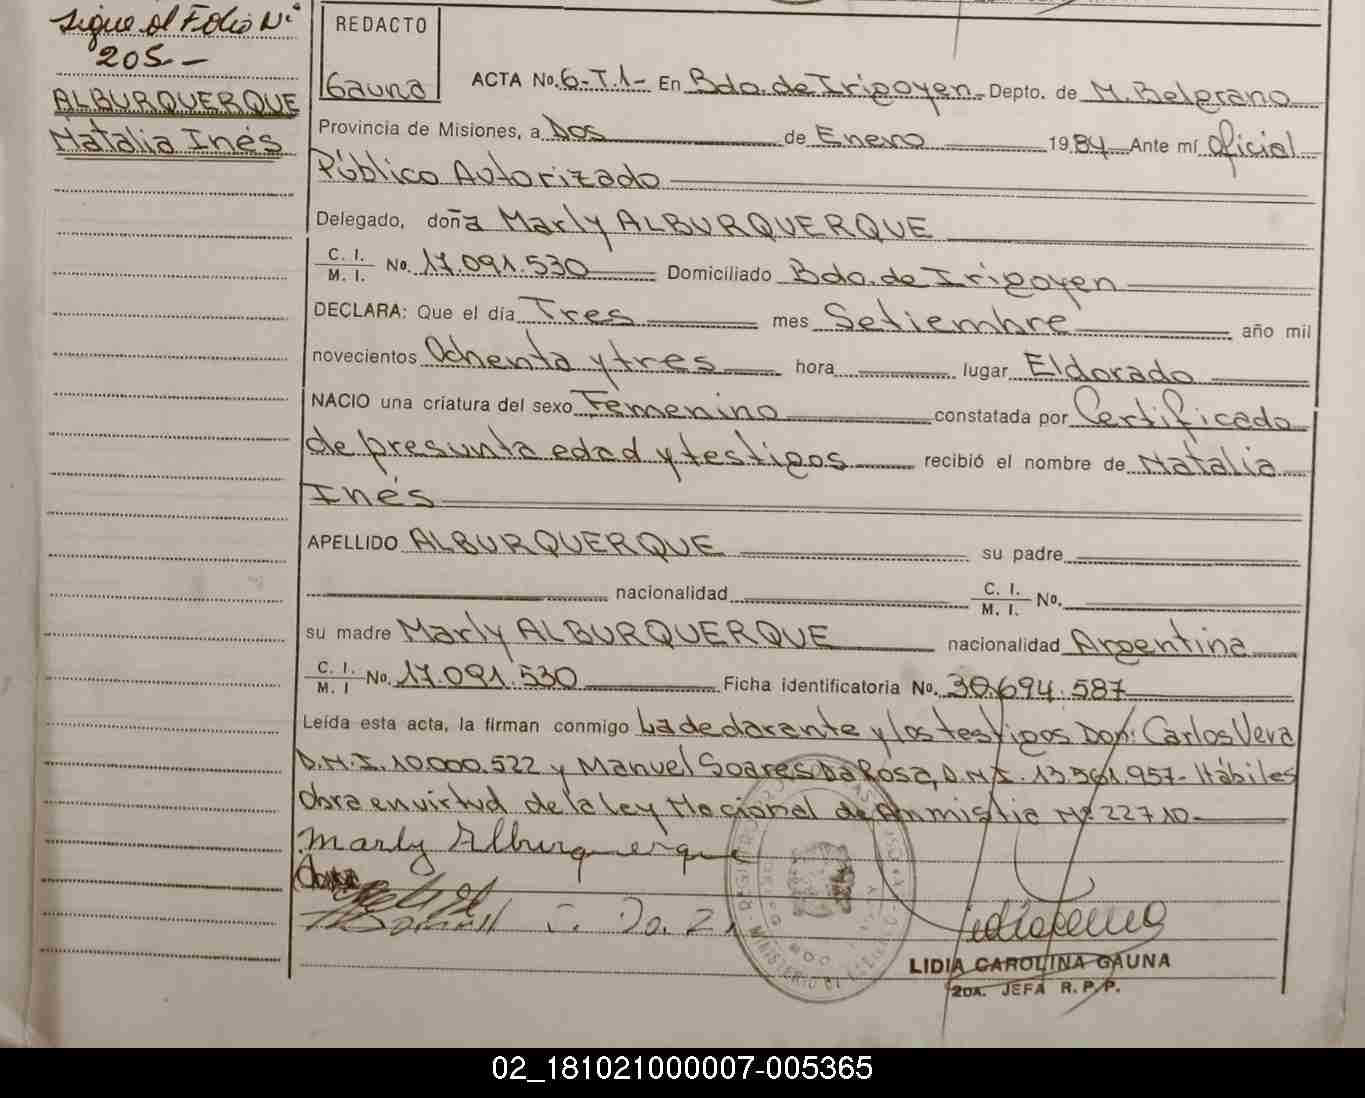 Sigue al Folio Nº
205 -
ALBURQUERQUE
Natalia Inés
REDACTO
Gauna
ACTA No. 6-T.1- En Bdo. de Irigoyen Depto. de M. Belgrano
Provincia de Misiones, a Dos de Enero 1984 Ante mí Oficial
Público Autorizado
Delegado, doña Marly ALBURQUERQUE
C. I.
M. I. No. 17.091.530 Domiciliado Bdo. de Irigoyen
DECLARA: Que el día Tres mes Setiembre año mil
novecientos Ochenta y tres hora lugar Eldorado
NACIO una criatura del sexo Femenino constatada por Certificado
de presunta edad y testigos recibió el nombre de Natalia
Inés
APELLIDO ALBURQUERQUE su padre
nacionalidad C. I.
M. I. No.
su madre Marly ALBURQUERQUE nacionalidad Argentina
C. I.
M. I No. 17.091.530 Ficha identificatoria No. 30.694.587
Leída esta acta, la firman conmigo La declarante y los testigos Don: Carlos Vera
D.N.I. 10.000.522 y Manuel Soares Da Rosa, D.N.I. 13.561.957- Hábiles
Obra en virtud de la ley Nacional de Amnistia Nº 22710-
Marly Alburquerque
LIDIA CAROLINA GAUNA
2DA. JEFA R. P. P.
02_181021000007-005365